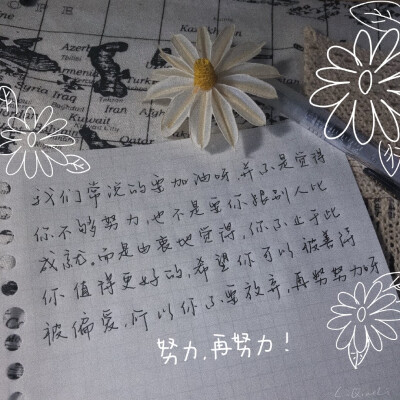 Azerb
Tbilisi
Armenia
Turkm
Syria
Iraq
Tehran
Baghdad
Iran
Kuwait
Kuwait City
我们常说的要加油呀,并不是觉得
你不够努力,也不是要你跟别人比
成就。而是由衷地觉得,你不止于此
你值得更好的,希望你可以被善待
被偏爱,所以你不要放弃,再努努力呀
努力,再努力!